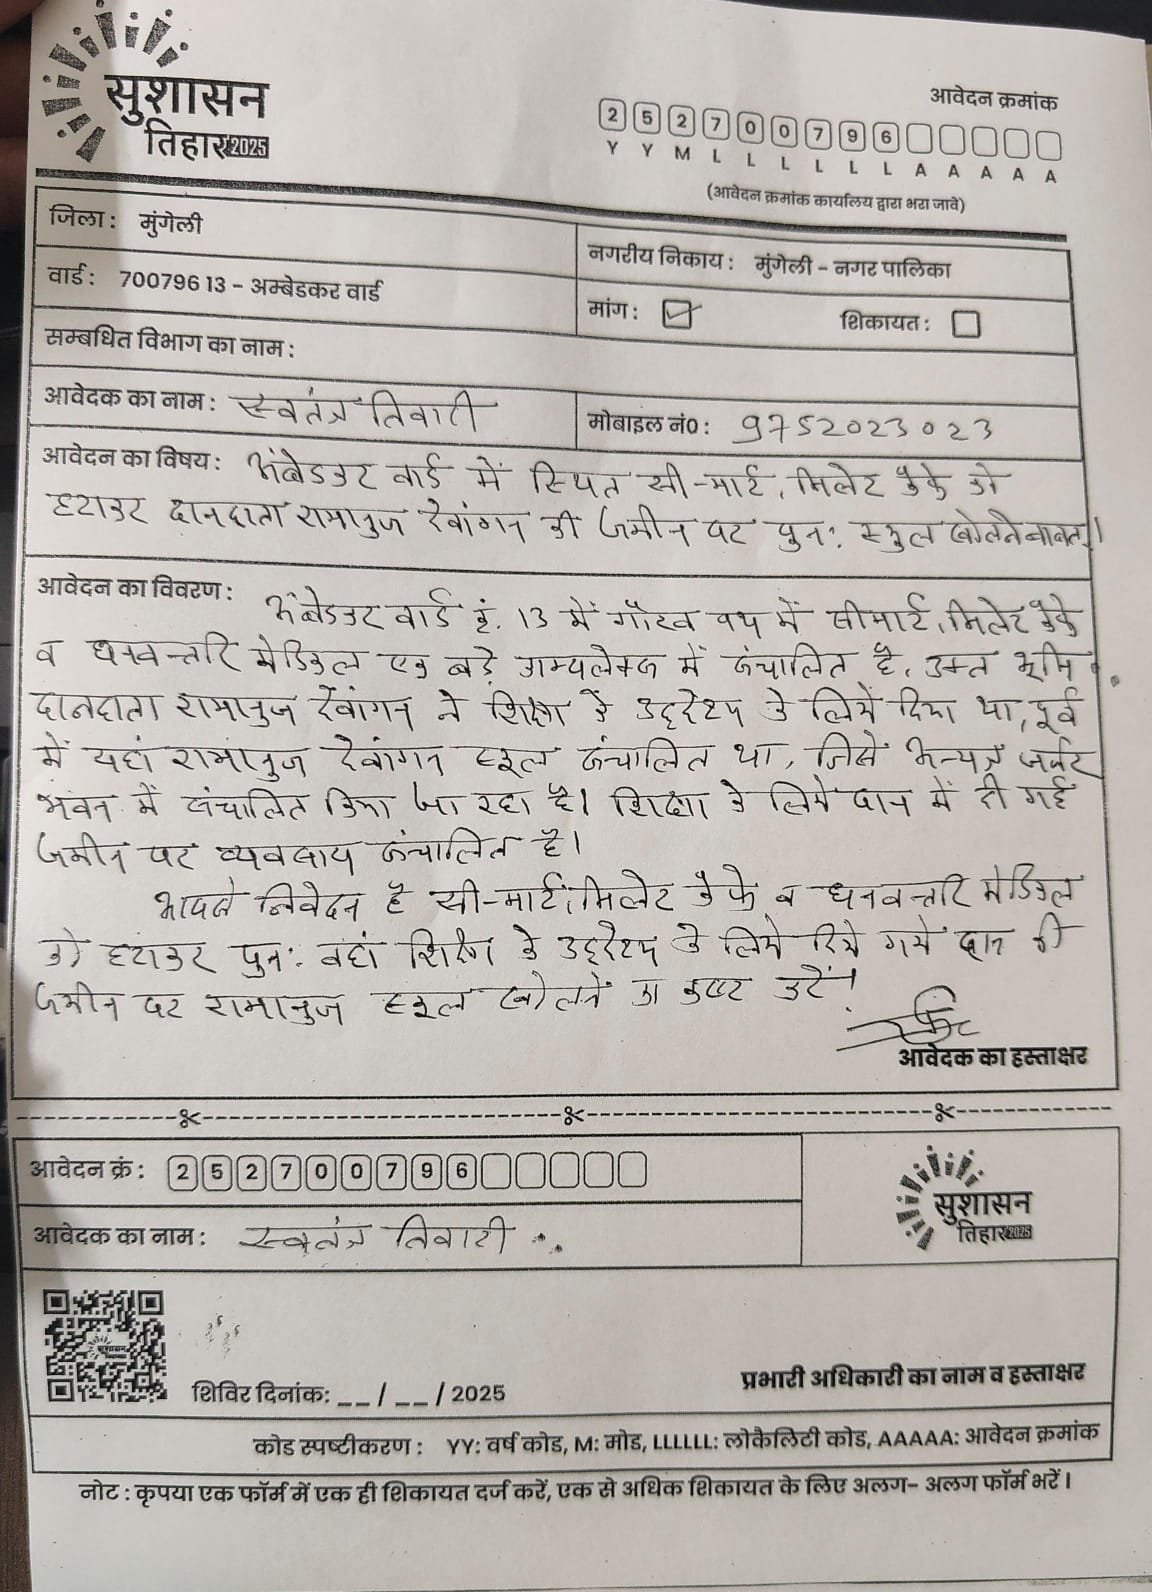 सुशासन
तिहार 2025
आवेदन क्रमांक
2 5 2 7 0 0 7 9 6
Y Y M L L L L L L A A A A A
(आवेदन क्रमांक कार्यालय द्वारा भरा जावे)
जिला : मुंगेली
नगरीय निकाय : मुंगेली - नगर पालिका
वार्ड : 7007961 3 - अम्बेडकर वार्ड
मांग : ☑ शिकायत : ☐
सम्बधित विभाग का नाम :
आवेदक का नाम : स्वतंत्र तिवारी
मोबाइल नं0 : 9752023023
आवेदन का विषय : अंबेडकर वार्ड में स्थित सी-मार्ट, मिलेट कैफे को
हटाकर दानदाता रामानुज देवांगन की जमीन पर पुनः स्कुल खोलने बाबत्।
आवेदन का विवरण : अंबेडकर वार्ड क्रं. 13 में गौरव पथ में सीमार्ट, मिलेट कैफे
व धनवन्तरि मेडिकल एक बड़े काम्पलेक्ज में संचालित है, उक्त भूमि
दानदाता रामानुज देवांगन ने शिक्षा के उद्देश्य के लिये दिया था, पूर्व
में यहां रामानुज देवांगन स्कूल संचालित था, जिसे अन्यत्र जर्जर
भवन में संचालित किया जा रहा है। शिक्षा के लिये दान में दी गई
जमीन पर व्यवसाय संचालित है।
आपसे निवेदन है सी-मार्ट, मिलेट कैफे व धनवन्तरि मेडिकल
को हटाकर पुनः वहां शिक्षा के उद्देश्य के लिये दिये गये दान की
जमीन पर रामानुज स्कूल खोलने का कष्ट करें।
आवेदक का हस्ताक्षर
आवेदन क्रं : 2 5 2 7 0 0 7 9 6
आवेदक का नाम : स्वतंत्र तिवारी
सुशासन
तिहार 2025
सुशासन
शिविर दिनांक: __ / __ / 2025
प्रभारी अधिकारी का नाम व हस्ताक्षर
कोड स्पष्टीकरण : YY: वर्ष कोड, M: मोड, LLLLLL: लोकैलिटी कोड, AAAAA: आवेदन क्रमांक
नोट : कृपया एक फॉर्म में एक ही शिकायत दर्ज करें, एक से अधिक शिकायत के लिए अलग- अलग फॉर्म भरें।